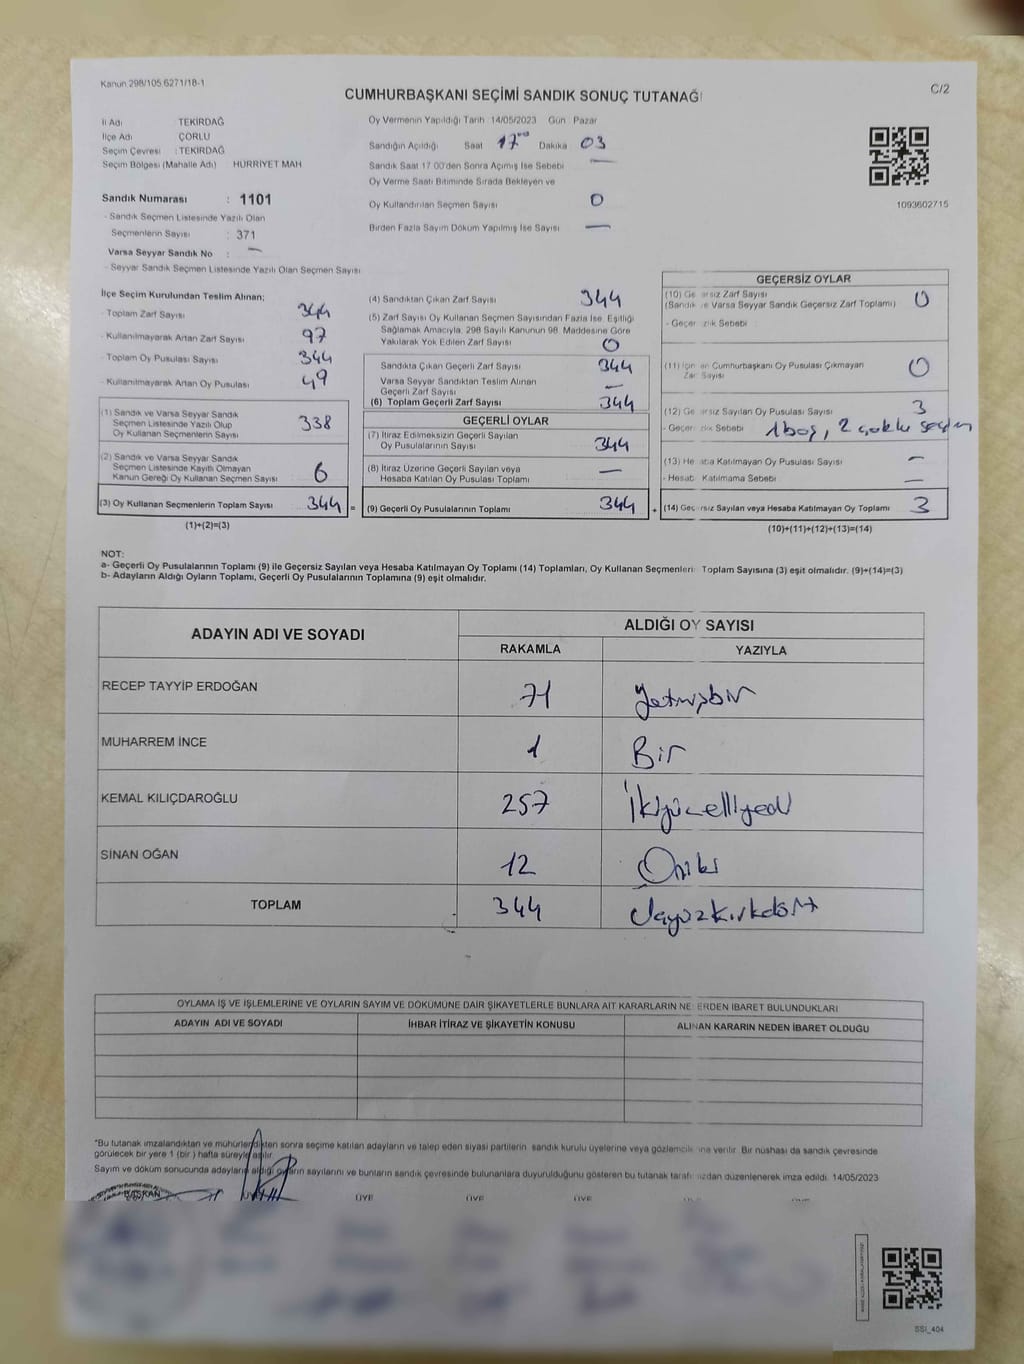 Kanun 298/105 6271/18-1
C/2
CUMHURBAŞKANI SEÇİMİ SANDIK SONUÇ TUTANAĞI
İl Adı : TEKİRDAĞ
İlçe Adı ÇORLU
Seçim Çevresi : TEKİRDAĞ
Seçim Bölgesi (Mahalle Adı) HÜRRİYET MAH
Sandık Numarası : 1101
- Sandık Seçmen Listesinde Yazılı Olan
Seçmenlerin Sayısı : 371
Varsa Seyyar Sandık No : —
- Seyyar Sandık Seçmen Listesinde Yazılı Olan Seçmen Sayısı
Oy Vermenin Yapıldığı Tarih 14/05/2023 Gün : Pazar
Sandığın Açıldığı Saat 17 Dakika 03
Sandık Saat 17.00'den Sonra Açımış İse Sebebi —
Oy Verme Saati Bitiminde Sırada Bekleyen ve
Oy Kullandırılan Seçmen Sayısı 0
Birden Fazla Sayım Döküm Yapılmış İse Sayısı —
1093602715
İlçe Seçim Kurulundan Teslim Alınan;
- Toplam Zarf Sayısı 344
- Kullanılmayarak Artan Zarf Sayısı 97
- Toplam Oy Pusulası Sayısı 344
- Kullanılmayarak Artan Oy Pusulası 49
(1) Sandık ve Varsa Seyyar Sandık
Seçmen Listesinde Yazılı Olup
Oy Kullanan Seçmenlerin Sayısı 338
(2) Sandık ve Varsa Seyyar Sandık
Seçmen Listesinde Kayıtlı Olmayan
Kanun Gereği Oy Kullanan Seçmen Sayısı 6
(3) Oy Kullanan Seçmenlerin Toplam Sayısı 344 =
(1)+(2)=(3)
(4) Sandıktan Çıkan Zarf Sayısı 344
(5) Zarf Sayısı Oy Kullanan Seçmen Sayısından Fazla İse, Eşitliği
Sağlamak Amacıyla, 298 Sayılı Kanunun 98. Maddesine Göre
Yakılarak Yok Edilen Zarf Sayısı 0
Sandıkta Çıkan Geçerli Zarf Sayısı 344
Varsa Seyyar Sandıktan Teslim Alınan
Geçerli Zarf Sayısı —
(6) Toplam Geçerli Zarf Sayısı 344
GEÇERLİ OYLAR
(7) İtiraz Edilmeksizin Geçerli Sayılan
Oy Pusulalarının Sayısı 344
(8) İtiraz Üzerine Geçerli Sayılan veya
Hesaba Katılan Oy Pusulası Toplamı —
(9) Geçerli Oy Pusulalarının Toplamı 344 +
GEÇERSİZ OYLAR
(10) Ge ersiz Zarf Sayısı
(Sandık ve Varsa Seyyar Sandık Geçersiz Zarf Toplamı) 0
- Geçer zlik Sebebi :
(11) İçin en Cumhurbaşkanı Oy Pusulası Çıkmayan
Zar Sayısı 0
(12) Ge ersiz Sayılan Oy Pusulası Sayısı 3
- Geçer zlik Sebebi 1 boş, 2 çoklu seçim
(13) He aba Katılmayan Oy Pusulası Sayısı —
- Hesab Katılmama Sebebi —
(14) Geç ersiz Sayılan veya Hesaba Katılmayan Oy Toplamı 3
(10)+(11)+(12)+(13)=(14)
NOT:
a- Geçerli Oy Pusulalarının Toplamı (9) ile Geçersiz Sayılan veya Hesaba Katılmayan Oy Toplamı (14) Toplamları, Oy Kullanan Seçmenleri Toplam Sayısına (3) eşit olmalıdır. (9)+(14)=(3)
b- Adayların Aldığı Oyların Toplamı, Geçerli Oy Pusulalarının Toplamına (9) eşit olmalıdır.
ADAYIN ADI VE SOYADI ALDIĞI OY SAYISI
RAKAMLA YAZIYLA
RECEP TAYYİP ERDOĞAN 71 Yetmişbir
MUHARREM İNCE 1 Bir
KEMAL KILIÇDAROĞLU 257 İkiyüzelliyedi
SİNAN OĞAN 12 Oniki
TOPLAM 344
OYLAMA İŞ VE İŞLEMLERİNE VE OYLARIN SAYIM VE DÖKÜMÜNE DAİR ŞİKAYETLERLE BUNLARA AİT KARARLARIN NE ERDEN İBARET BULUNDUKLARI
ADAYIN ADI VE SOYADI İHBAR İTİRAZ VE ŞİKAYETİN KONUSU ALINAN KARARIN NEDEN İBARET OLDUĞU
"Bu tutanak imzalandıktan ve mühürlendikten sonra seçime katılan adayların ve talep eden siyasi partilerin sandık kurulu üyelerine veya gözlemcil ine verilir. Bir nüshası da sandık çevresinde
görülecek bir yere 1 (bir) hafta süreyle asılır.
Sayım ve döküm sonucunda adayların aldığı oyların sayılarını ve bunların sandık çevresinde bulunanlara duyurulduğunu gösteren bu tutanak taraf ızdan düzenlenerek imza edildi. 14/05/2023
BAŞKAN ÜYE ÜYE ÜYE
SSİ_404